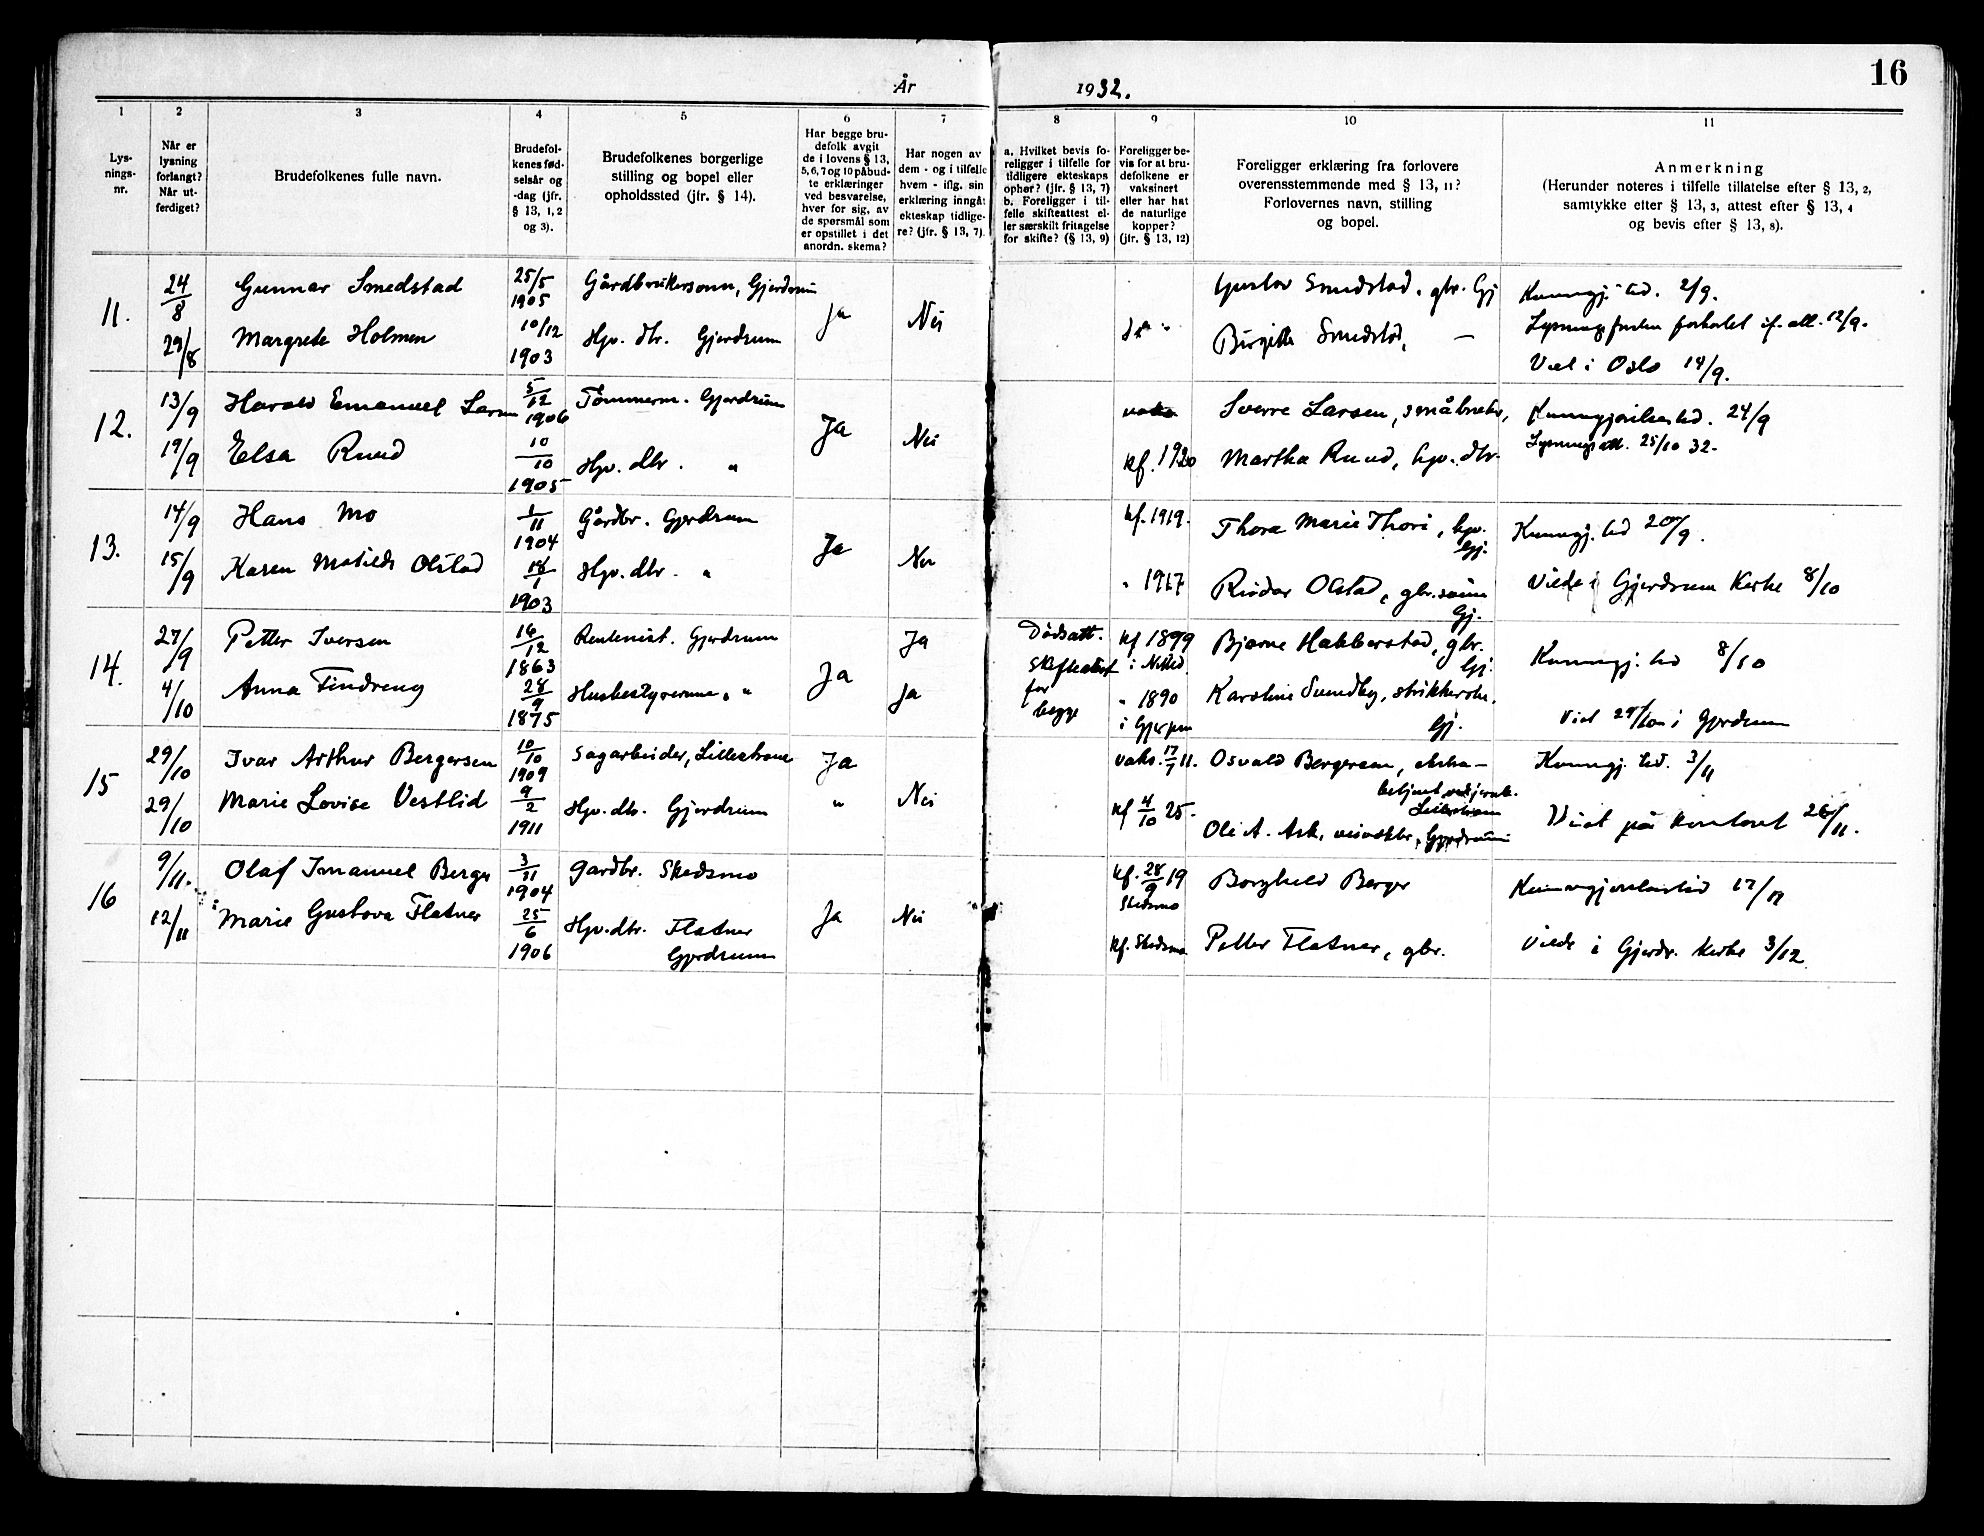 16
År 1932.
1 2 3 4 5 6 7 8 9 10 11
Lys-
nings-
nr.
Når er
lysning
forlangt?
Når ut-
ferdiget?
Brudefolkenes fulle navn.
Brudefol-
kenes fød-
selsår og
-dag (jfr.
§ 13, 1, 2
og 3).
Brudefolkenes borgerlige
stilling og bopel eller
opholdssted (jfr. § 14).
Har begge bru-
defolk avgit
de i lovens § 13,
5, 6, 7 og 10 påbud-
te erklæringer
ved besvarelse,
hver for sig, av
de spørsmål som
er opstillet i det
anordn. skema?
Har nogen av
dem - og i tilfelle
hvem - iflg. sin
erklæring inngåt
ekteskap tidlige-
re? (jfr. § 13, 7).
a. Hvilket bevis fo-
religger i tilfelle for
tidligere ekteskaps
ophør? (jfr. § 13, 7)
b. Foreligger i til-
felle skifteattest el-
ler særskilt fritagelse
for skifte? (§ 13, 9)
Foreligger be-
vis for at bru-
defolkene er
vaksinert
eller har hat
de naturlige
kopper?
(jfr. § 13, 12)
Foreligger erklæring fra forlovere
overensstemmende med § 13, 11?
Forlovernes navn, stilling
og bopel.
Anmerkning
(Herunder noteres i tilfelle tillatelse efter § 13, 2,
samtykke efter § 13, 3, attest efter § 13, 4
og bevis efter § 13, 8).
11.
24/8
Gunnar Smedstad
25/5
1905
Gårdbrukersønn, Gjerdrum
29/8
Margrete Holmen
10/12
1903
Hpv. dtr. Gjerdrum
Ja
Nei
Gustav Smedstad, gbr. Gj
Birgitte Smedstad, —
Kunngj. tid. 2/9.
12/9.
Viet i Oslo 14/9.
12.
13/9
Harald Emanuel Larsen
5/12
1906
Tømmerm. Gjerdrum
19/9
Elsa Ruud
10/10
1905
Hpv. dtr. "
Ja
Nei
kf. 1920
Sverre Larsen, småbruker,
Martha Ruud, hpv. dtr.
Kunngjørelsestid. 24/9
Lysningsatt. 25/10 32.
13.
14/9
Hans Mo
1/11
1904
Gårdbr. Gjerdrum
15/9
Karen Matilde Olstad
18/1
1903
Hpv. dtr. "
Ja
Nei
kf. 1919.
" 1917
Thora Marie Thori, hpv.
Gj.
Reidar Olstad, gbr. sønn
Gj.
Kunngj. tid 20/9.
Viede i Gjerdrum Kirke 8/10
14.
27/9
Petter Iversen
16/12
1863
Rentenist. Gjerdrum
4/10
Anna Tindreng
28/9
1875
Husbestyrerinne, "
Ja
Ja
Ja
Dødsatt.
Skifteattest
for
begge
kf 1899
" 1890
i Gjerpen
Bjarne Habberstad, gbr.
Gj.
Karoline Sundby, strikkerske,
Gj.
Kunngj. tid 8/10
Viet 29/10 i Gjerdrum
15
29/10
Ivar Arthur Bergersen
10/10
1909
Sagarbeider, Lillestrøm
29/10
Marie Lovise Vestlid
9/2
1911
Hpv. dtr. Gjerdrum
Ja
"
Nei
vaks. 17/7 11.
kf 4/10 25.
Osvald Bergersen, ekstra-
betjent ved jernb.
Lillestrøm
Ole A. Ask, veivokter, Gjerdrum
Kunngj. tid. 3/11
Viet på kontoret 26/11.
16
9/11.
Olaf Imanuel Berger
3/11
1904
Gardbr. Skedsmo
12/11
Marie Gustava Flatner
25/6
1906
Hpv. dtr. Flatner
Gjerdrum
Ja
Nei
kf. 28/9 19
Skedsmo
kf. Skedsmo
Borghild Berger
Petter Flatner, gbr.
Kunngjørelsestid 17/11
Viede i Gjerdr. Kirke 3/12